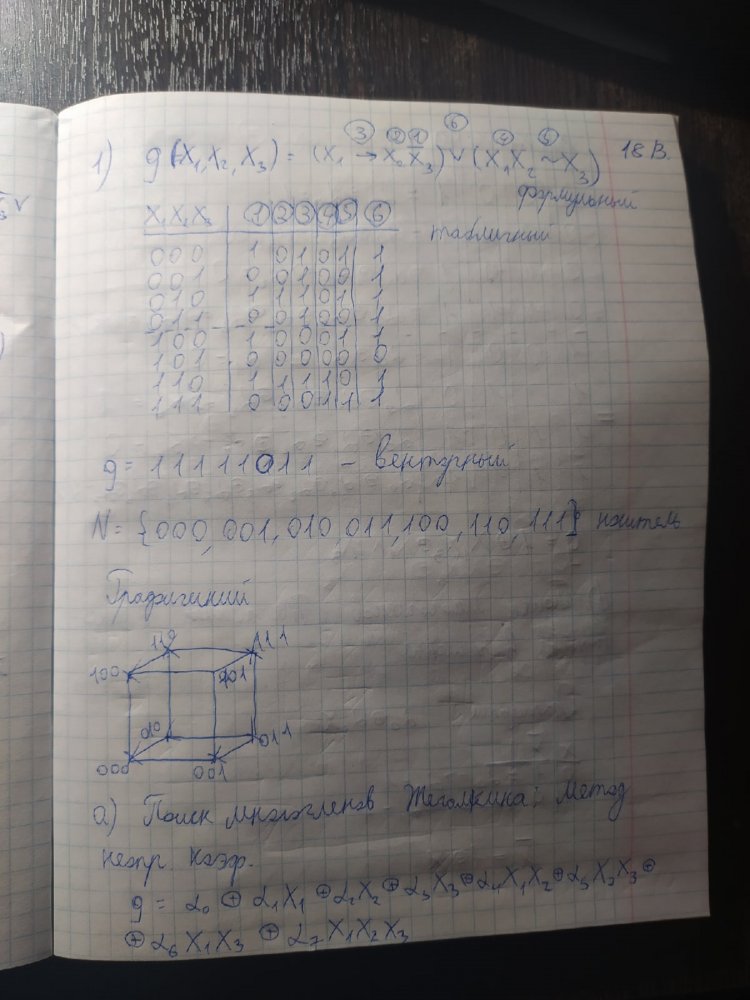 1) g(X₁,X₂,X₃) = (X₁ → X₂ X̄₃) ∨ (X₁X₂ ~ X₃) 18 В.
③ ② ① ⑥ ④ ⑤
формульный
X₁X₂X₃ ① ② ③ ④ ⑤ ⑥ табличный
000 1 0 1 0 1 1
001 0 0 1 0 0 1
010 1 1 1 0 1 1
011 0 0 1 0 0 1
100 1 0 0 0 1 1
101 0 0 0 0 0 0
110 1 1 1 1 0 1
111 0 0 0 1 1 1
g = 11111011 – векторный
N = {000, 001, 010, 011, 100, 110, 111} носитель
Графический
110 111
100 101
010 011
000 001
а) Поиск многочленов Жегалкина: метод
неопр. коэф.
g = α₀ ⊕ α₁X₁ ⊕ α₂X₂ ⊕ α₃X₃ ⊕ α₄X₁X₂ ⊕ α₅X₂X₃ ⊕
⊕ α₆X₁X₃ ⊕ α₇X₁X₂X₃